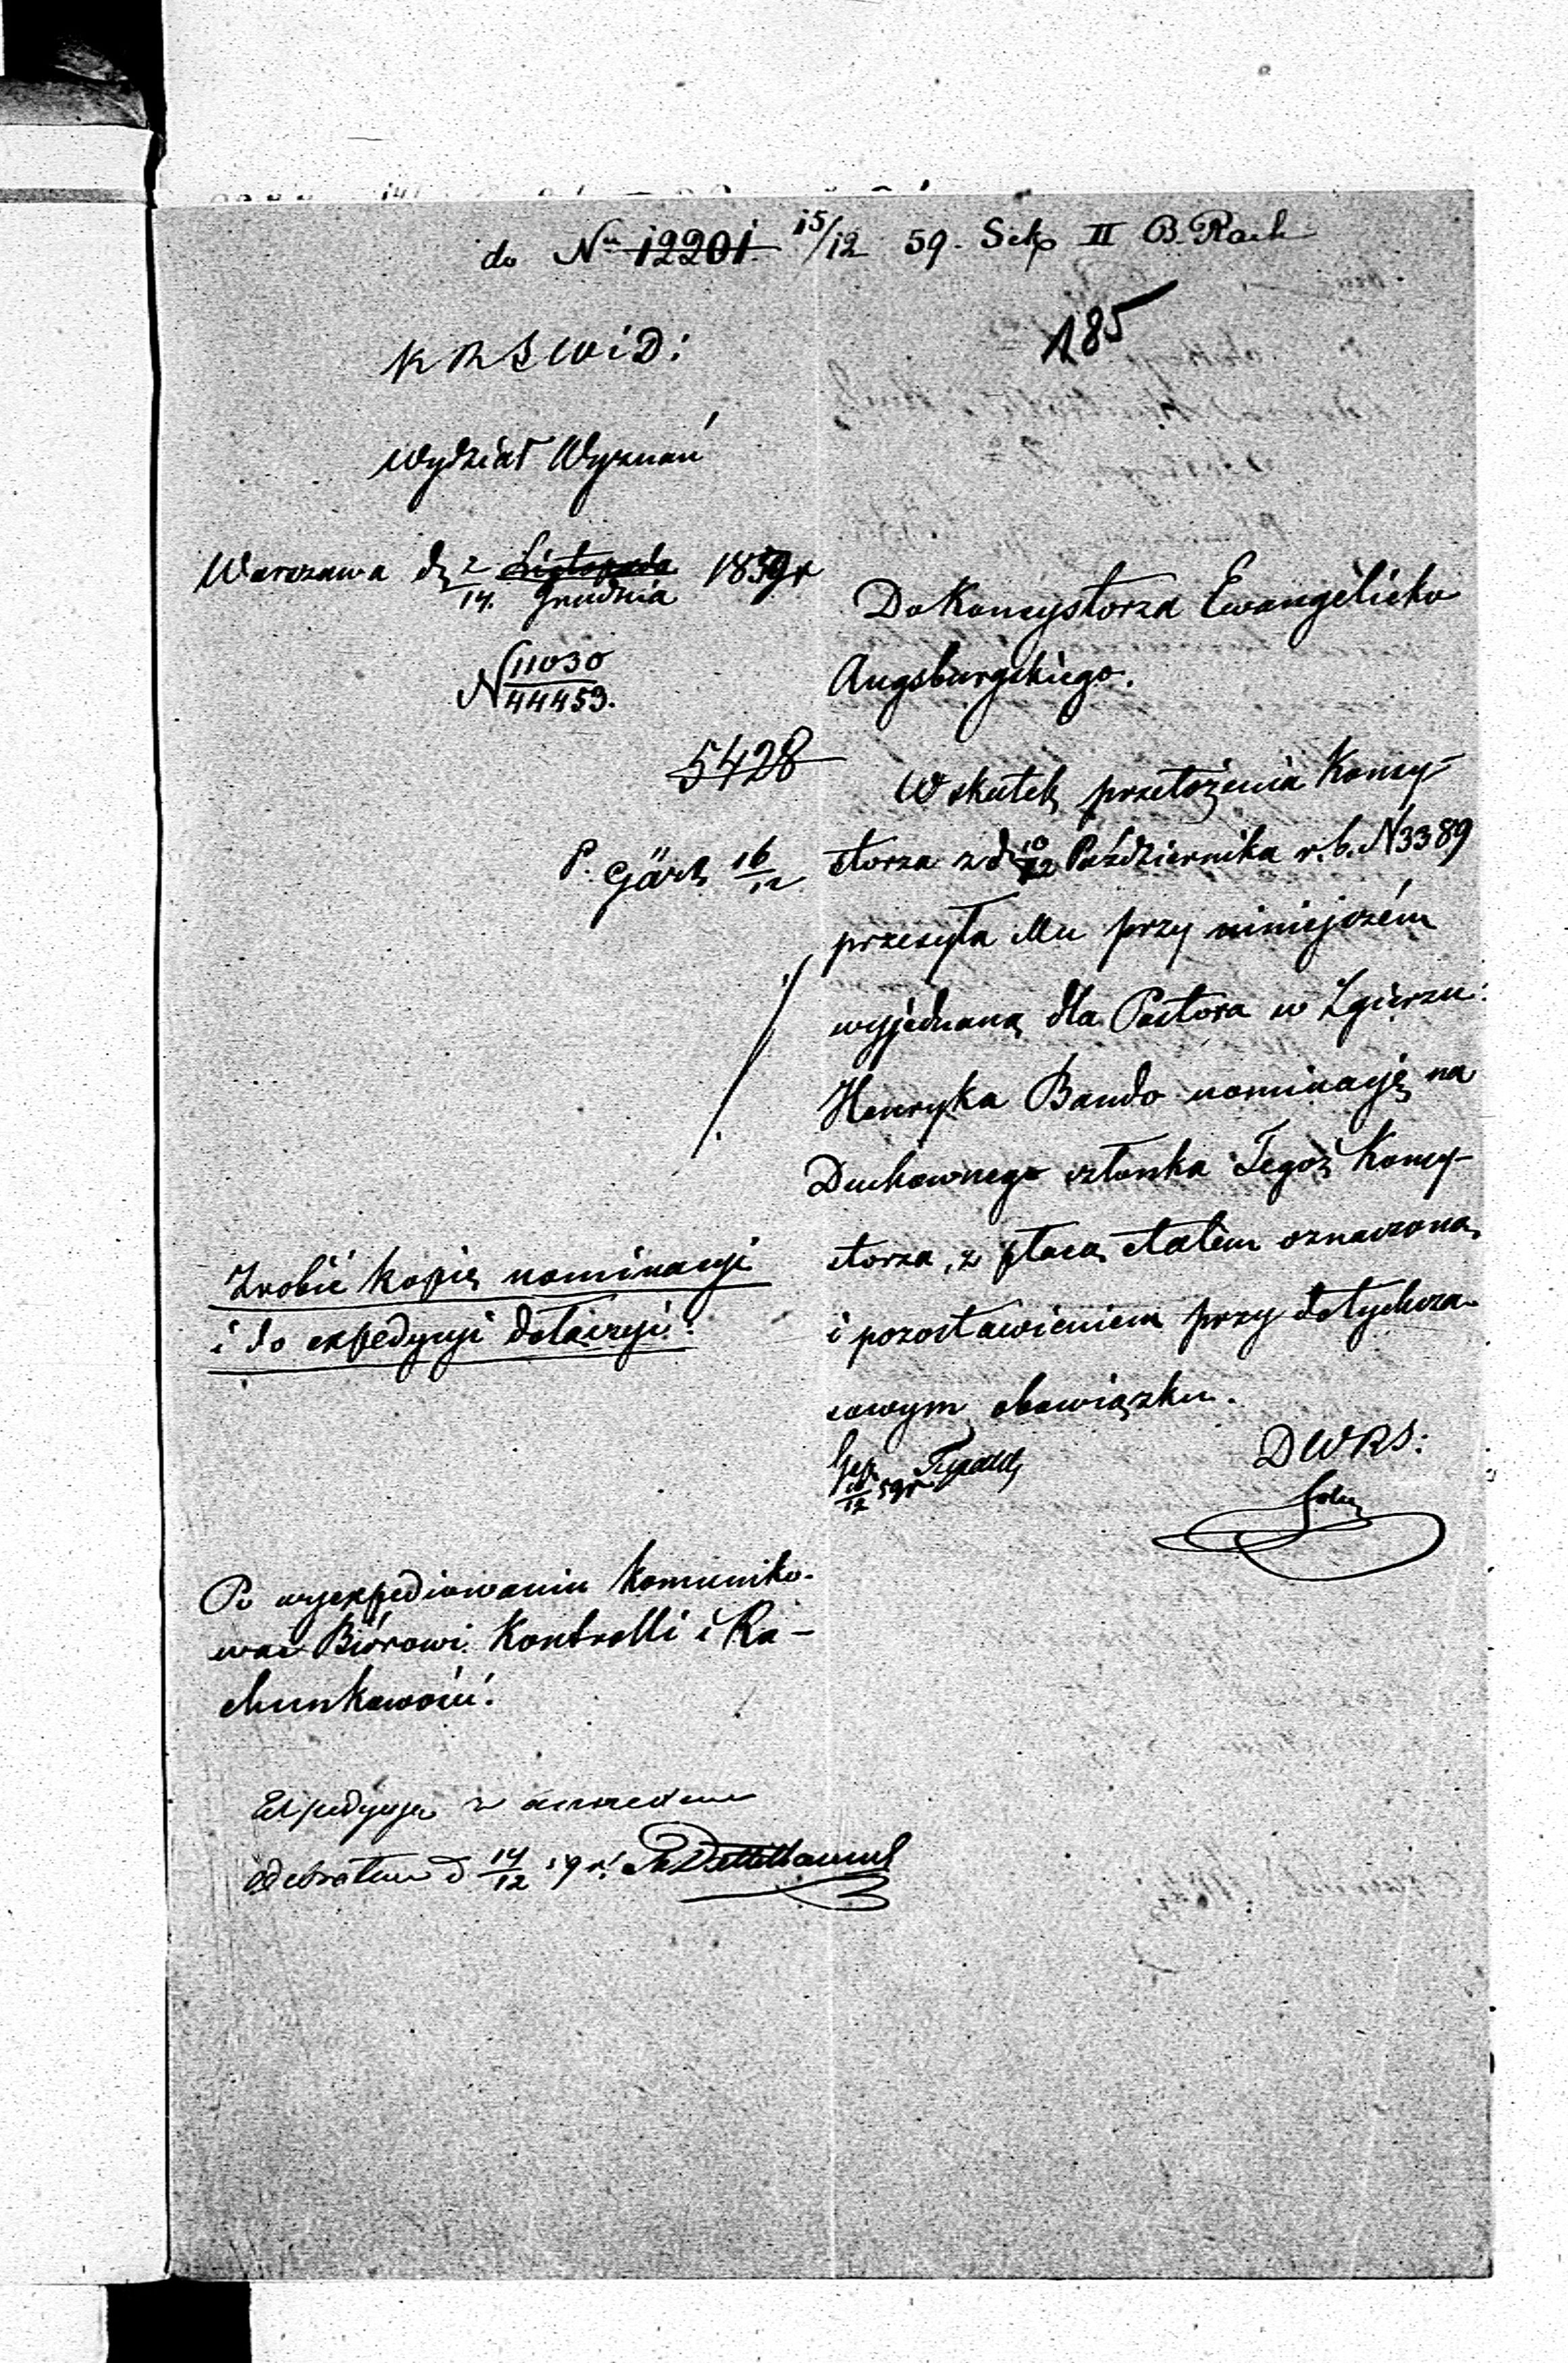 do Nru 12201 15/12 59. Sek II B. Rach
185
KRSWiD:
Wydział Wyznań
Warszawa d. 2/14. Listopada Grudnia 1859 r
N 11030/44453.
5428
P. Gärtz 16/12
Do Konsystorza Ewangelicko
Augsburgskiego.
W skutek przełożenia Konsy-
storza z d. 10/22 Października r. b. N 3389
przesyła Mu przy niniejszém
wyjednaną dla Pastora w Zgierzu
Henryka Bando nominacyę na
Duchownego członka Tegoż Konsy-
storza, z płacą etatem oznaczoną
i pozostawieniem przy dotychcza-
sowym obowiązku.
DWRS:
59 r.
Zrobić kopię nominacyi
i do expedycyi dołączyć.
Po wyexpediowaniu komuniko-
wać Biórowi Kontrolli i Ra-
chunkowości.
Expedycyę z annexem
odebrałem d 14/12 59 r.